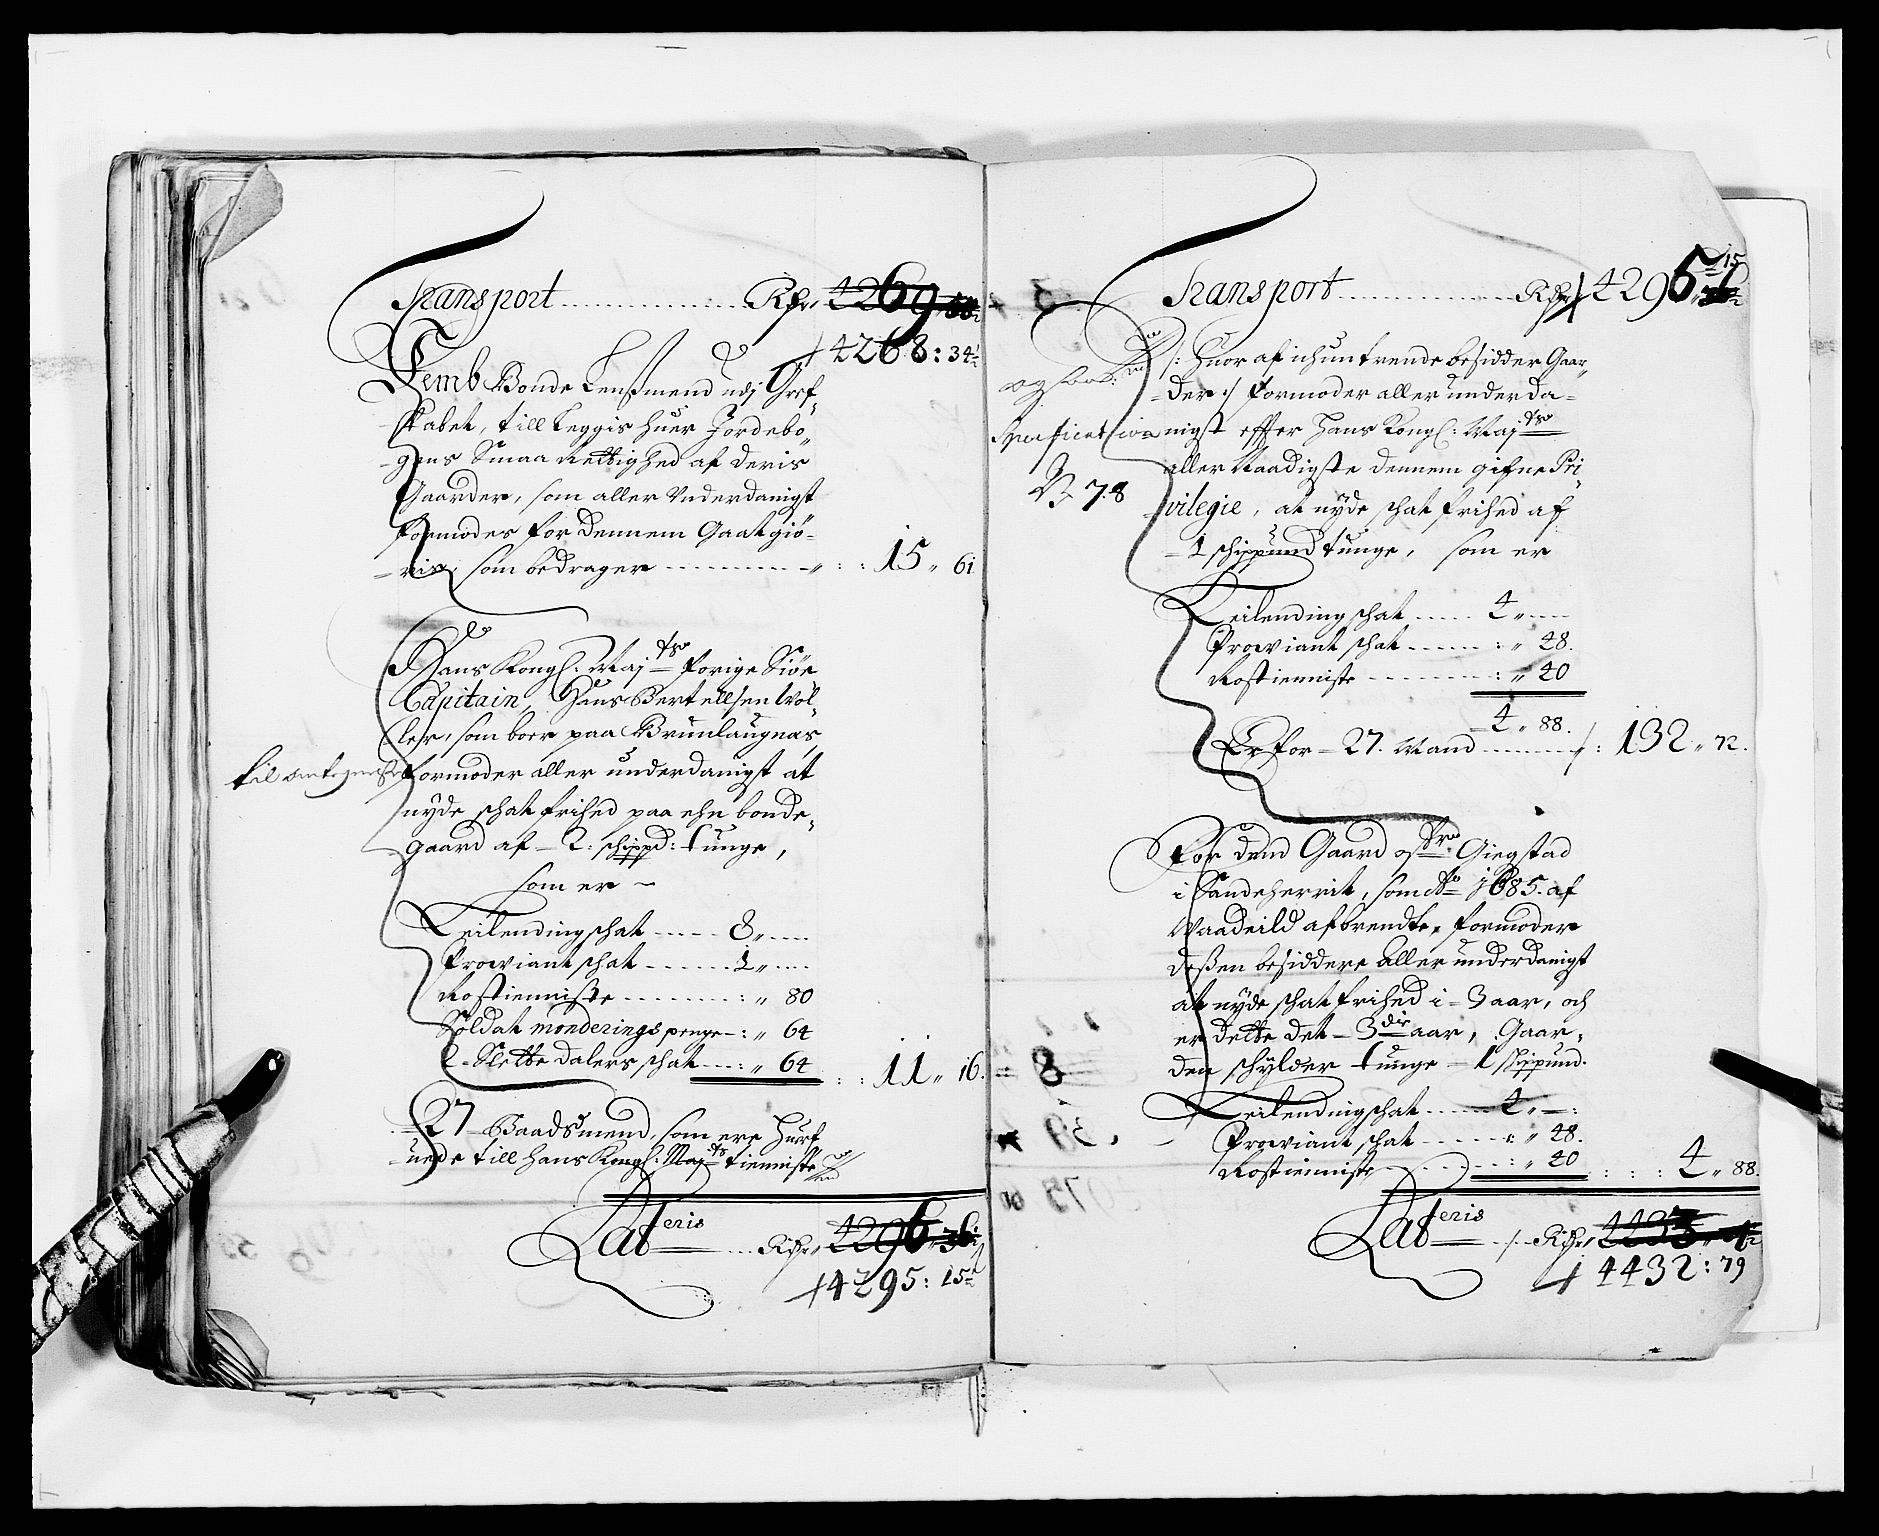 Transport Rdr 4269
4268: 34½
Femb Bonde Lensmend udj Gref-
skabet, till Leggis huer Jordebo-
gens Smaa Rettighed af deris
Gaarder, som aller Underdanigst
formodes for dennem Gaat giø-
ris, som bedrager 15 „ 61
Hans Kongl: Maj:ts forige Siøe
Capitain, Hans Bertellsen Wøl-
ler, som boer paa Brunlaugnæs,
formoder aller underdanigst at
nyde schatfrihed paa ehn bonde-
gaard af 2: schippd: tunge,
som er
Leilending schat 8 „
Proviant schat 1 „
Rostienniste „ 80
Soldat monderings penge „ 64
2 Slette dalers schat „ 64 11 „ 16.
27 Baadsmend, som ere hurf
uede till hans Kongl: Maj:ts tienniste
Lateris Rdr 4296 „ 36
4295: 15½
Transport Rdr 4295 15½
/: huor af ichun trende besidder Gaar-
der :/ formoder aller underda-
nigst effter Hans Kongl: Maj:ts
Specification
No 78
aller Naadigste dennem gifne Pri-
vilegie, at nyde schat frihed af
1 schippund tunge, som er
Leilending schat 4 „
Proviant schat „ 48.
Rostienniste „ 40
4 „ 88.
Er for 27. Mand 132 „ 72.
For dend Gaard Giegstad
i Sandeherrit, som Ao 1685. af
Vaadeild afbrendte, formoder
deßen besiddere aller underdanigst
at nyde schatfrihed i 3 aar, och
er dette det 3die aar, Gaar-
den schylder tunge 1 skippund.
Leilending schat 4 „
Proviant schat „ 48.
Rostienniste „ 40 4 „ 88.
Lateris Rdr
4432: 79